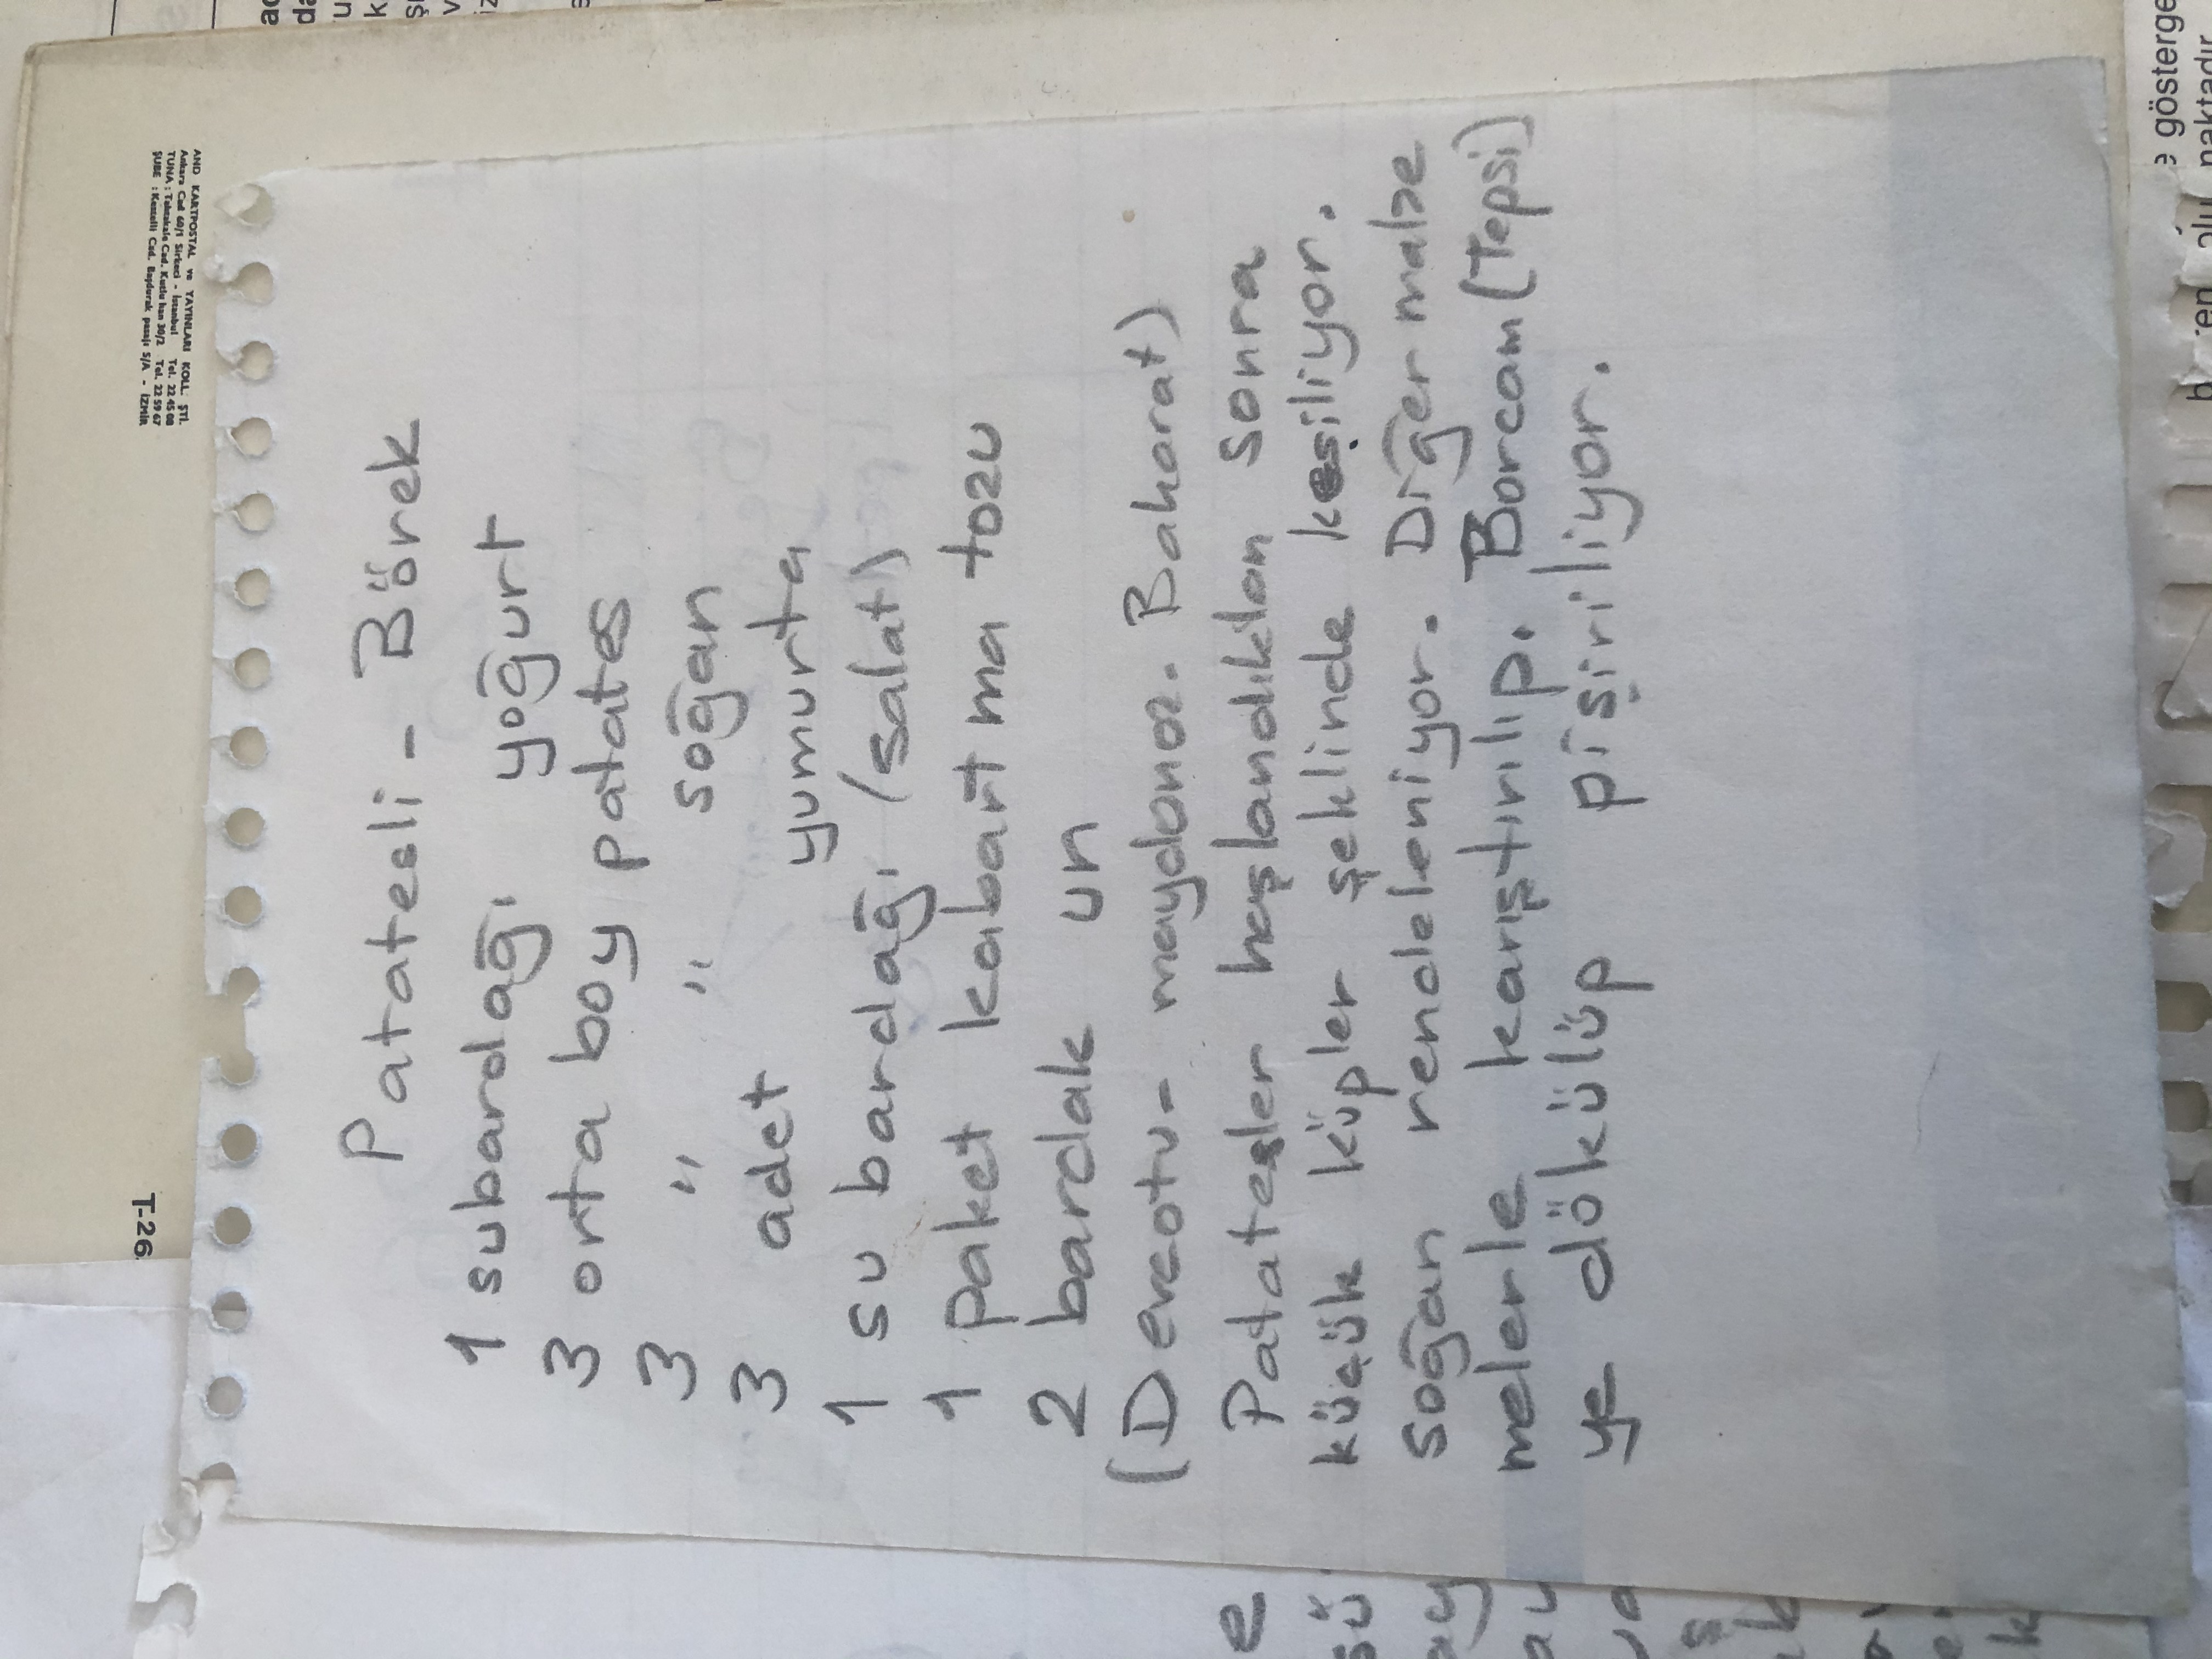 T-26
AND KARTPOSTAL ve YAYINLARI KOLL. ŞTİ.
Ankara Cad 60/1 Sirkeci - İstanbul Tel. 22 45 08
TUNA : Tahtakale Cad. Kutlu han 30/2 Tel. 22 59 67
ŞUBE : Kestelli Cad. Başdurak pasajı 5/A - İZMİR
Patatesli - Börek
1 subardağı yoğurt
3 orta boy patates
3 " " soğan
3 adet yumurta
1 su bardağı (salat)
1 paket kabartma tozu
2 bardak un
(Dereotu - maydonoz. Baharat)
Patatesler haşlandıktan sonra
küçük küpler şeklinde kesiliyor.
soğan rendeleniyor. Diğer malze
melerle karıştırılıp. Borcam (Tepsi)
ye dökülüp pişiriliyor.